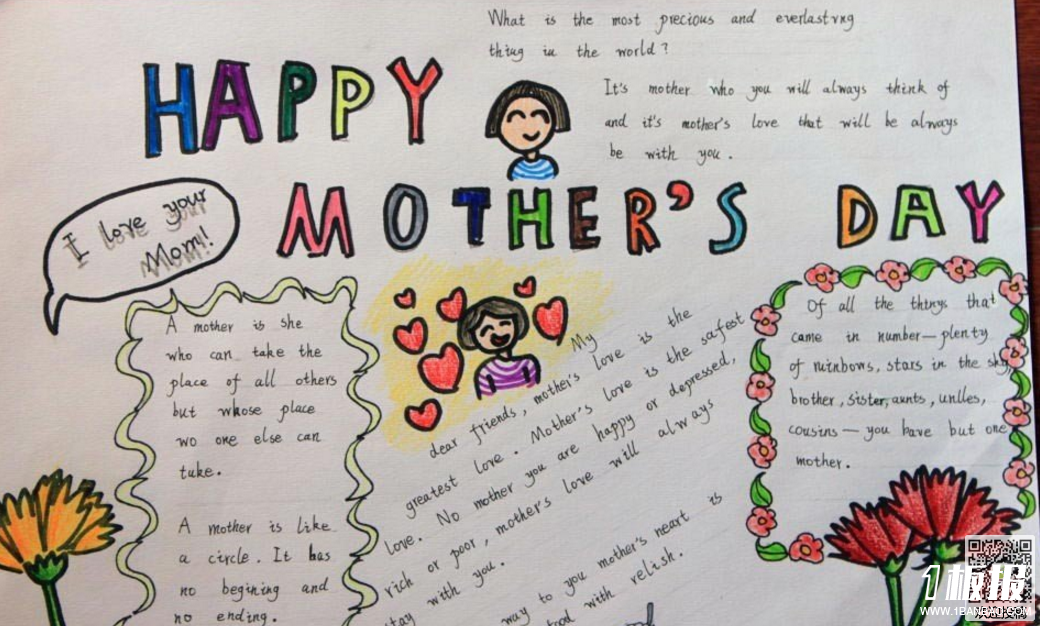 What is the most precious and everlastvng
thing in the world?
HAPPY
It's mother who you will always think of
and it's mother's love that will be always
be with you.
MOTHER'S DAY
I love your
Mom!
A mother is she
who can take the
place of all others
but whose place
wo one else can
tuke.
A mother is like
a circle. It has
no begining and
no ending.
My
dear friends, mother's love is the
greatest love. Mother's love is the safest
love. No mother you are happy or depressed,
rich or poor, mother's love will always
stay with you.
way to you mother's neart is
with relish.
Of all the things that
came in number—plenty
of ruinbows, stars in the sky
brother, sister, aunts, unlles,
cousins—you have but one
mother.
1板报
WWW.1BANBAO.COM